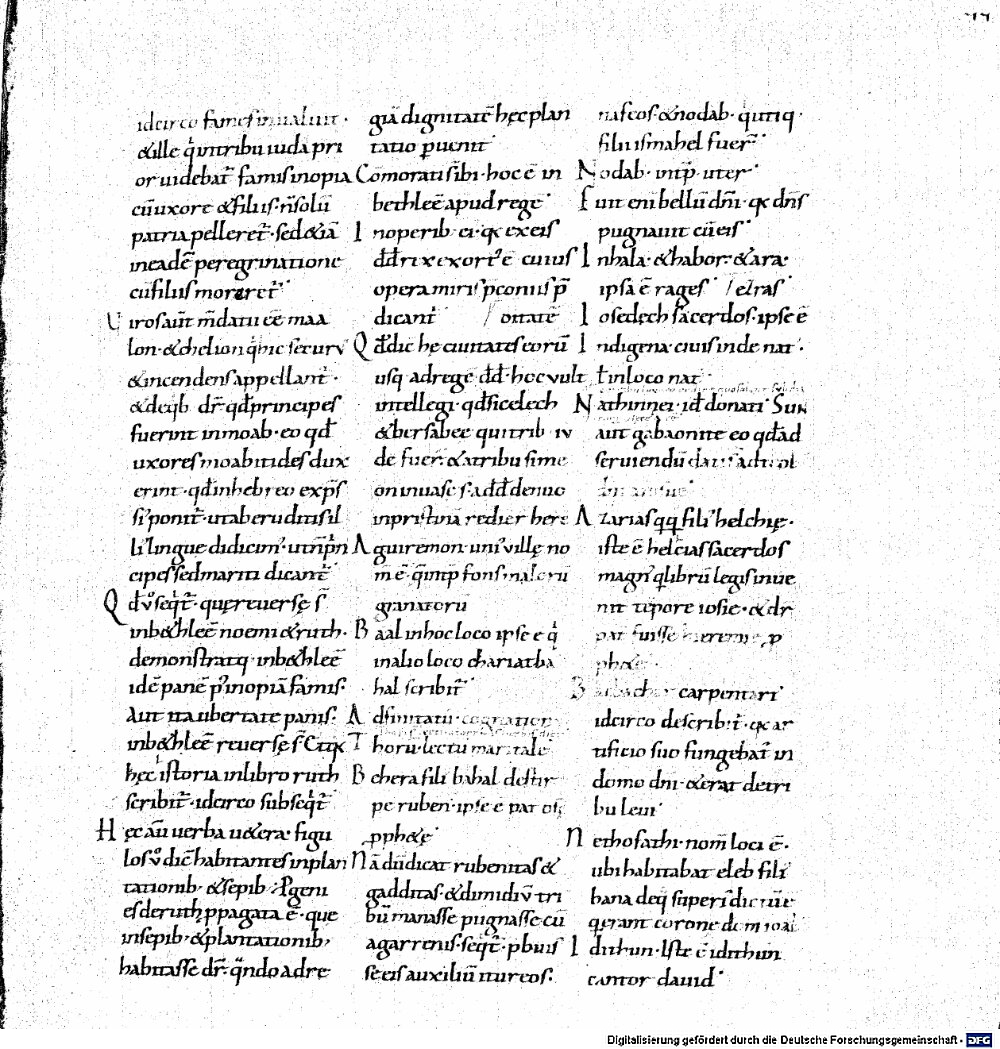 idcirco fames inualuit·
&ille q̇ intribu iuda pri
or uidebat̄ famis inopia
cū uxore &filiis· n̄ solū
patria pelleret̄· sed &iā
ineadē peregrinatione
cū filiis moreret̄
Uiros aūt m̄datū eē maa
lon· &chelion q̇ hic securus
&incendens appellant̄·
&deq̄b· dr̄· qd̄ principes
fuerint inmoab· eo qd̄
uxores moabitides dux
erint· qd̄ inhebreo exp̄s
si' ponit̄· utaberuditis il
li' lingue didicim'· ut n̄ prin
cipes sed mariti dicant̄
Qd̄ v̊ seqt̄· que reuersę s̄
inb&hleē noemi &ruth·
demonstratq· inb&hleē
idē panē p' inopiā famis·
Aut ita ubertate panis·
inb&hleē reuersę s̄
hęc istoria inlibro ruth
scribit̄· idcirco subseqt̄
Hęc aū uerba u&era· figu
los v̊ dic̄ habitantes inplan
tationib· &sepib·
es deruth ppagata ē· que
insepib· &plantationib,
habitasse dr̄· q̄ndo adre
giā dignitatē hęc plan
tatio puenit
Cōmorati sibi· hoc ē in
bethleē apud regē
Inoperib· ei· qx ex eis
dd̄ rix exort' ē cuius
opera miri spconiis p̄
dicant̄ / ortate
Qd̄ dic̄ hę ciuitates eorū
usq adregē dd̄· hoc uult
intellegi· qd̄ sicelech
&bersabee quitrib· iu
de fuer̄· &atribu sime
on inuase s̄ add̄ denuo
inpristinā redier here
Aguiremon· uni' uillę no
m̄ ē· q̇ intp̄ fons malorū
granatorū
Baal inhoc loco ipse ē q̇
inalio loco chariatba
hal scribit̄
Adfinitatū cognation
Thorū· lectū maritale
Bchera fili' bahal
pe ruben· ipse ē pat̄
pph&ę
Nā diiudicat rubenitas &
gadditas· &dimidiū tri
bū manasse pugnasse cū
agarrenis· seqt̄· pbuis
se eis auxiliū itureos·
nafeos· &nodab· quitiq·
filii ismahel fuer̄
Nodab· intp̄· uter
Fuit eni bellū dn̄i· qx dn̄s
pugnauit cū eis
Inhala· &habor· &ara·
ipsa ē rages /
Iosedech sacerdos· ipse ē
Indigena· ciuis inde nat'·
t̄ inloco nat'
Nathinnei· id donati' Sun
aut gabaonite eo qd̄ ad
seruiendū
Azarias qq̄ fili' helchię·
iste ē helcias sacerdos
magn' q̇ librū legis inue
nit tēpore iosie· &dr̄
pat̄ fuisse hieremię p
ph&ę
carpentari'
idcirco describit̄· qx ar
tificio suo fungebat̄ in
domo dn̄i· &erat de tri
bu leui
Nethofathi· nom̄ loci ē·
ubi habitabat eleb fili'
bana deq superi'
qerant corone dom' ioab
Idithun· Iste ē idithun
cantor dauid
Digitalisierung gefördert durch die Deutsche Forschungsgemeinschaft - DFG